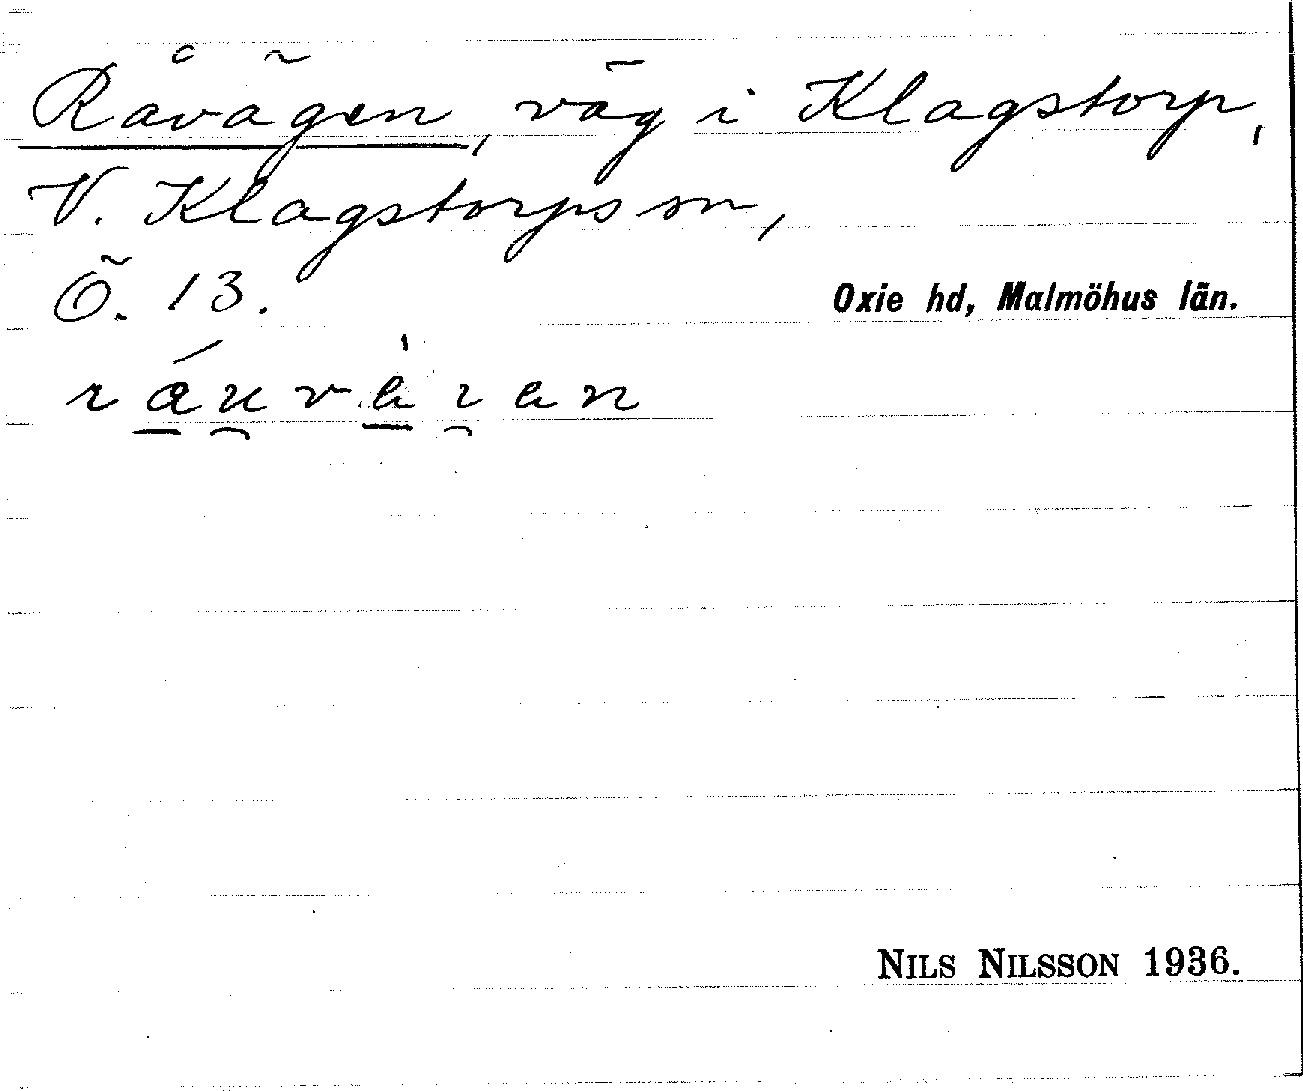 Råvägen, väg i Klagstorp,
V. Klagstorps sn,
Ö. 13.
Oxie hd, Malmöhus län.
NILS NILSSON 1936.